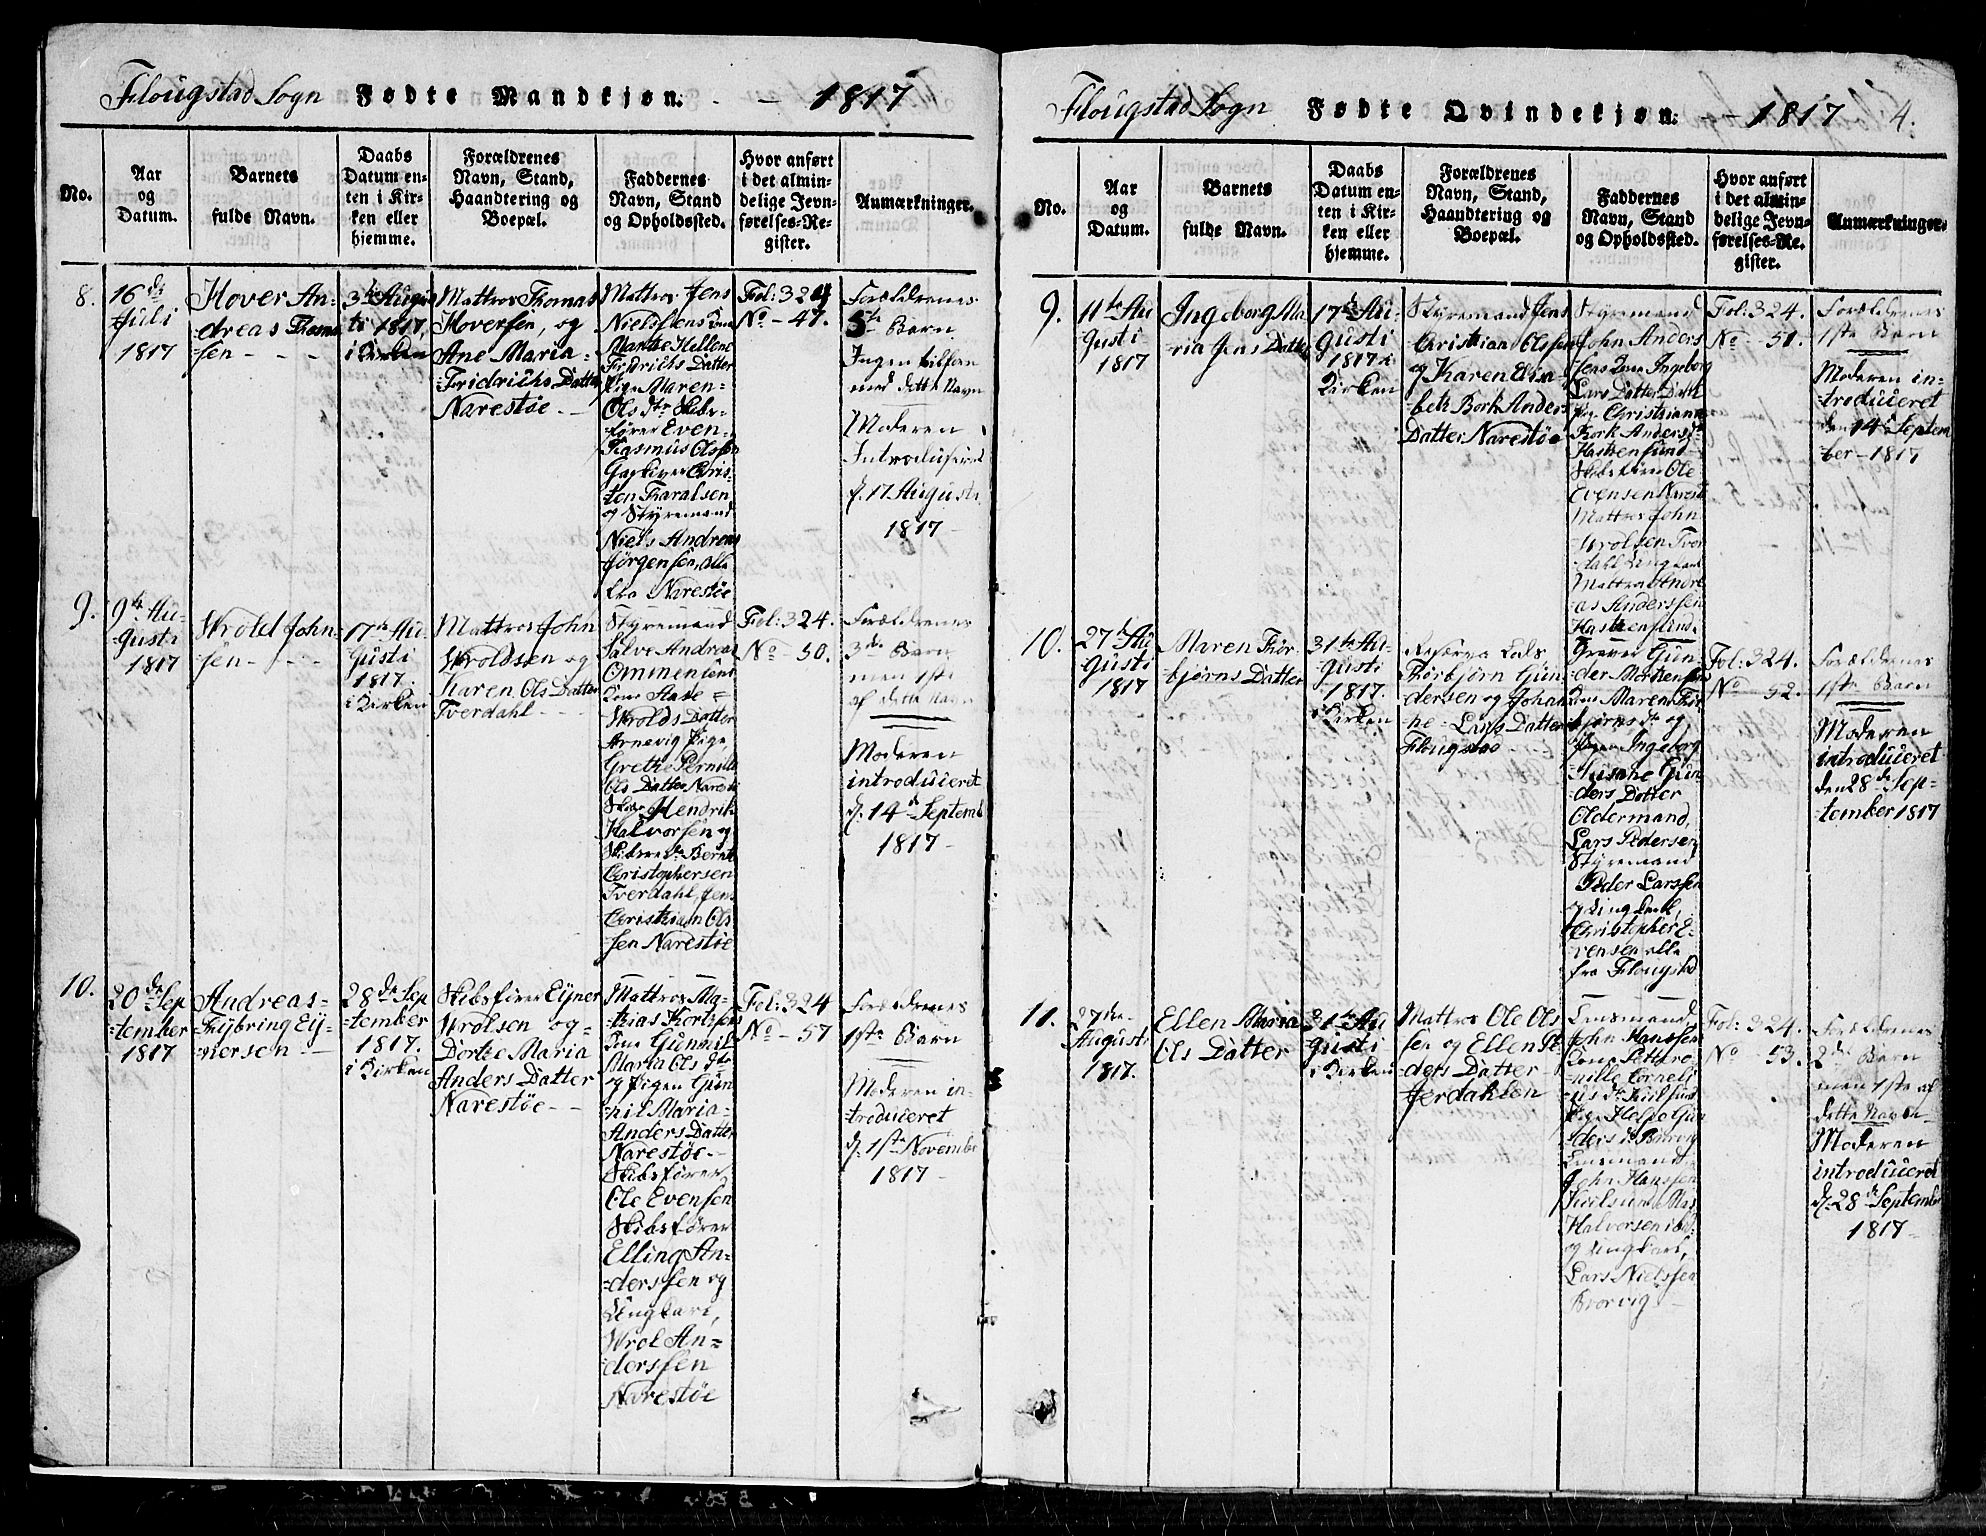 Flougstad Sogn Fødte Mandkjøn. - - 1817
No.
Aar
og
Datum.
Barnets
fulde Navn.
Daabs
Datum en-
ten i Kir-
ken eller
hjemme.
Forældrenes
Navn, Stand,
Haandtering og
Boepæl.
Faddernes
Navn, Stand
og Opholdssted.
Hvor anført
i det almin-
delige Jevn-
førelses-Re-
gister.
Anmærkninger.
8.
16de
Juli
1817
Hover An-
dreas Thom
sen - - -
3die Augu
sti 1817,
i Kirken
Mattros Thomas
Hoversen, og
Ane Maria
Fridrichs Datter
Narestøe -
Mattros Jens
Nielssens Kone
Marthe Hellene
Fridrichs Datter
Pige Maren
Ols dtr Skibs-
fører Even
Rasmus Olssen
Christen Taralsen
og Styremand
Niels Andreas
Jørgensen, alle
fra Narestøe
Fol: 324
No - 47.
Forældrenes
5te Barn
Ingen tilforn
med dette Navn
Moderen
Introduseret
d. 17 Augusti
1817 -
9.
9de Au-
gusti
1817
Wrold John-
sen - - -
17de Au-
gusti
1817.
i Kirken
Mattros John
Wroldsen og
Karen Ols Datter
Tverdahl - -
Styremand
Salve Andreas
Ommensens
Kone Aase
Wrolds Datter
Arnevig Pige
Grethe Pernille
Ols Datter Narestø
Hendrik
Halvorsen og
Bernt
Christophersen
Tverdahl, Jens
Christian Ols
sen Narestøe
Fol: 324.
No - 50.
Forældrenes
3die Barn
men 1ste
af dette Navn
Moderen
introduceret
d. 14de Septemb
1817 -
10.
20de Sep
tember
1817
Andreas
Fybring Ey-
nersen -
28de Sep
tember
1817.
i Kirken
Skibsfører Eyner
Wrolsen og
Dorthe Maria
Anders Datter
Narestøe - -
Mattros Ma-
thias Kortssens
Kone Gunnil
Maria Ols dtr
og Pigen Gun-
nil Maria
Anders Datter
Narestøe -
Skibsfører
Ole Evensen
Skibsfører
Elling An-
derssen og
Ungkarl,
Wrol An-
derssen
Narestøe
Fol: 324
No - 57
Forældrenes
1ste Barn
Moderen in-
troduceret
d. 1ste November
1817 -
Flougstad Sogn Fødte Qvindekjøn. - - 1817 4.
No.
Aar
og
Datum.
Barnets
fulde Navn.
Daabs
Datum en-
ten i Kir-
ken eller
hjemme.
Forældrenes
Navn, Stand,
Haandtering og
Boepæl.
Faddernes
Navn, Stand
og Opholdssted.
Hvor anført
i det almin-
delige Jevn-
førelses-Re-
gister.
Anmærkninger.
9.
11te Au
gusti
1817
Ingeborg Ma
ria Jens Datter
17de Au-
gusti
1817 i
Kirken
Styremand Jens
Christian Olssen
og Karen Elisa
beth Bork Anders
Datter Narestøe
Styremand
John Anders
sens Kone Ingeborg
Lars Datter
Christiane
Bork Anders dtr
Hastensund
Skibsfører Ole
Evensen Narestø
Mattros John
Wrolsen Tver
dahl Ungkarl
Mattros Andre
as Anderssen
Hastensund.
Fol: 324.
No - 51.
Forældrenes
1ste Barn
Moderen in-
troduceret
den 14de Septem
ber - 1817
10.
27de Au
gusti
1817
Maren Thor
bjørns Datter
31te Au-
gusti
1817.
i Kirken
Reserva Lods
Thorbjørn Gun
dersen og Johan
ne Lars Datter
Flougstad
Gun
der Mortensens
Kone Maren Thor
bjørns dtr og
Pigen Ingeborg
Susane Gun
ders Datter
Oldermand,
Lars Pedersen,
Styremand
Peder Larssen
og Ungkarl,
Christopher E-
vensen alle
fra Flougstad
Fol: 324.
No - 52.
Forældrenes
1ste Barn
Moderen
introduceret
den 28de Sep-
tember 1817
11.
27de
Augusti
1817.
Ellen Maria
Ols Datter
31te Au
gusti
i Kirken
Mattros Ole Ols
sen og Ellen Pe
ders Datter
Jerdahlen
Lensmand
John Hanssens
Kone Pettro
nille Corneli
us dtr
Pige Helje Gun
ders d. Borvig
Lensmand
John Hanssen
Halvorsen
og Ungkarl,
Lars Nielssen
Borvig -
Fol: 324.
No - 53.
Forældrenes
2det Barn
men 1ste af
dette Navn
Moderen
introduceret
d. 28de September
1817 -